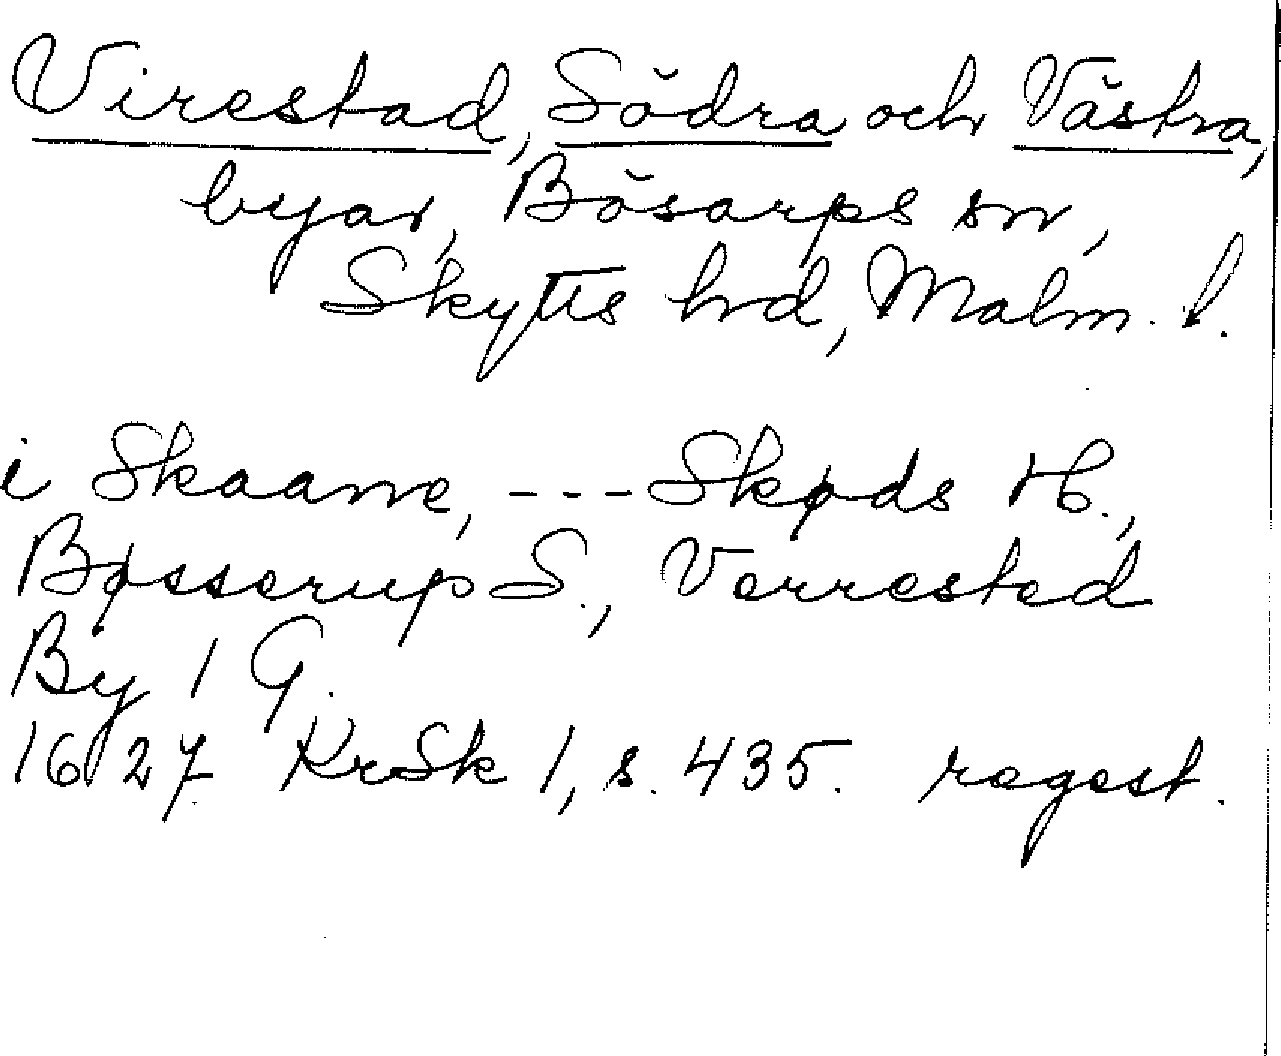 Virestad, Södra och Västra,
byar, Bösarps sn,
Skytts hd, Malm. l.
i Skaane, --- Skøds H.,
Bøsserup S., Verrested
By 1 G.
1627 KrSk 1, s. 435. regest.